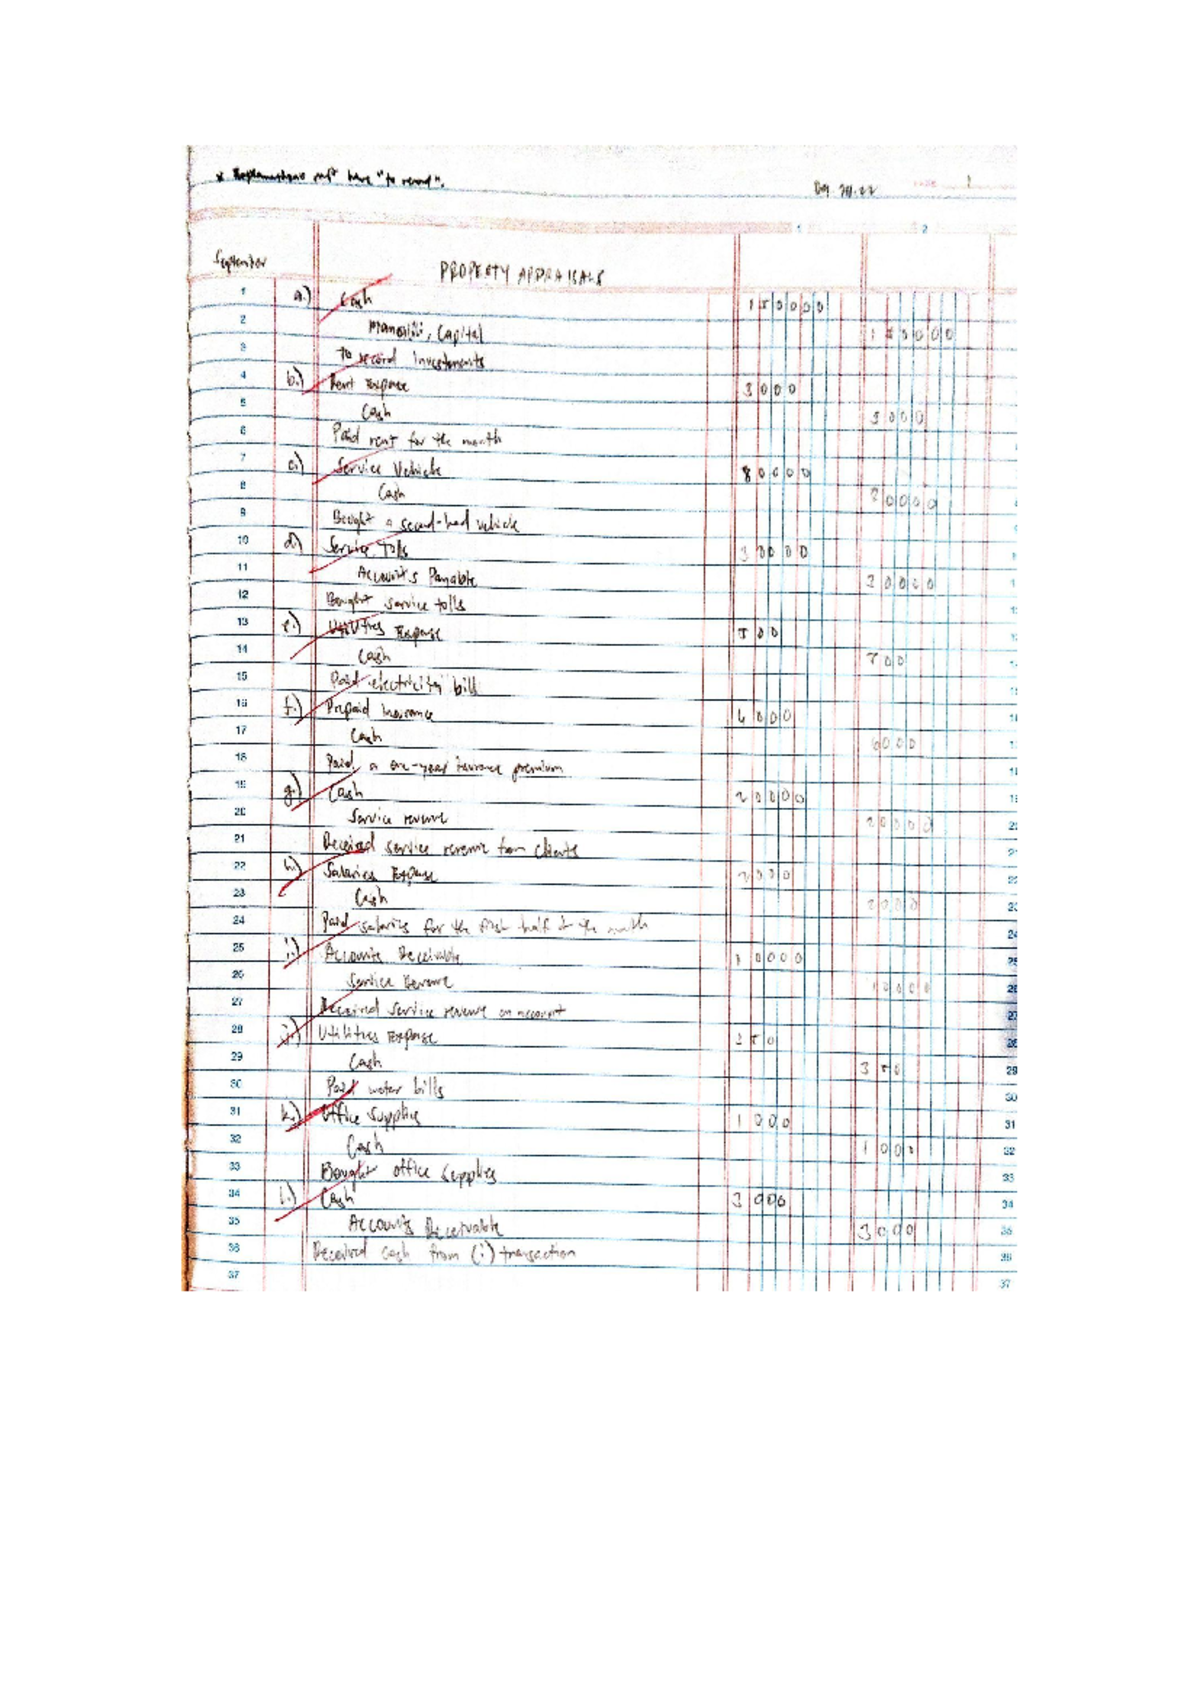 * Explanations must have "to record".
09.20.22 1
1 2
September PROPERTY APPRAISALS
1 a.) Cash 150000
2 Capital 150000
3 to record investments
4 b.) Rent Expense 3000
5 Cash 3000
6 Paid rent for the month
7 c.) Service Vehicle 80000
8 Cash 80000
9 Bought a second-hand vehicle
10 d.) Service Tolls 30000
11 Accounts Payable 30000
12 Bought service tolls
13 e.) Utilities Expense
14 Cash
15 Paid electricity bill
16 f.) Prepaid Insurance 6000
17 Cash 6000
18 Paid a one-year insurance premium
19 g.) Cash 20000
20 Service revenue 20000
21 Received service revenue from clients
22 h.) Salaries Expense 2000
23 Cash 2000
24 Paid salaries for the first half of the month
25 i.) Accounts Receivable 10000
26 Service Revenue 10000
27 Received service revenue on account
28 j.) Utilities Expense 350
29 Cash 350 29
30 Paid water bills 30
31 k.) Office Supplies 1000 31
32 Cash 1000 32
33 Bought office supplies 33
34 l.) Cash 3000 34
35 Accounts Receivable 3000 35
36 Received cash from (i) transaction 36
37 37